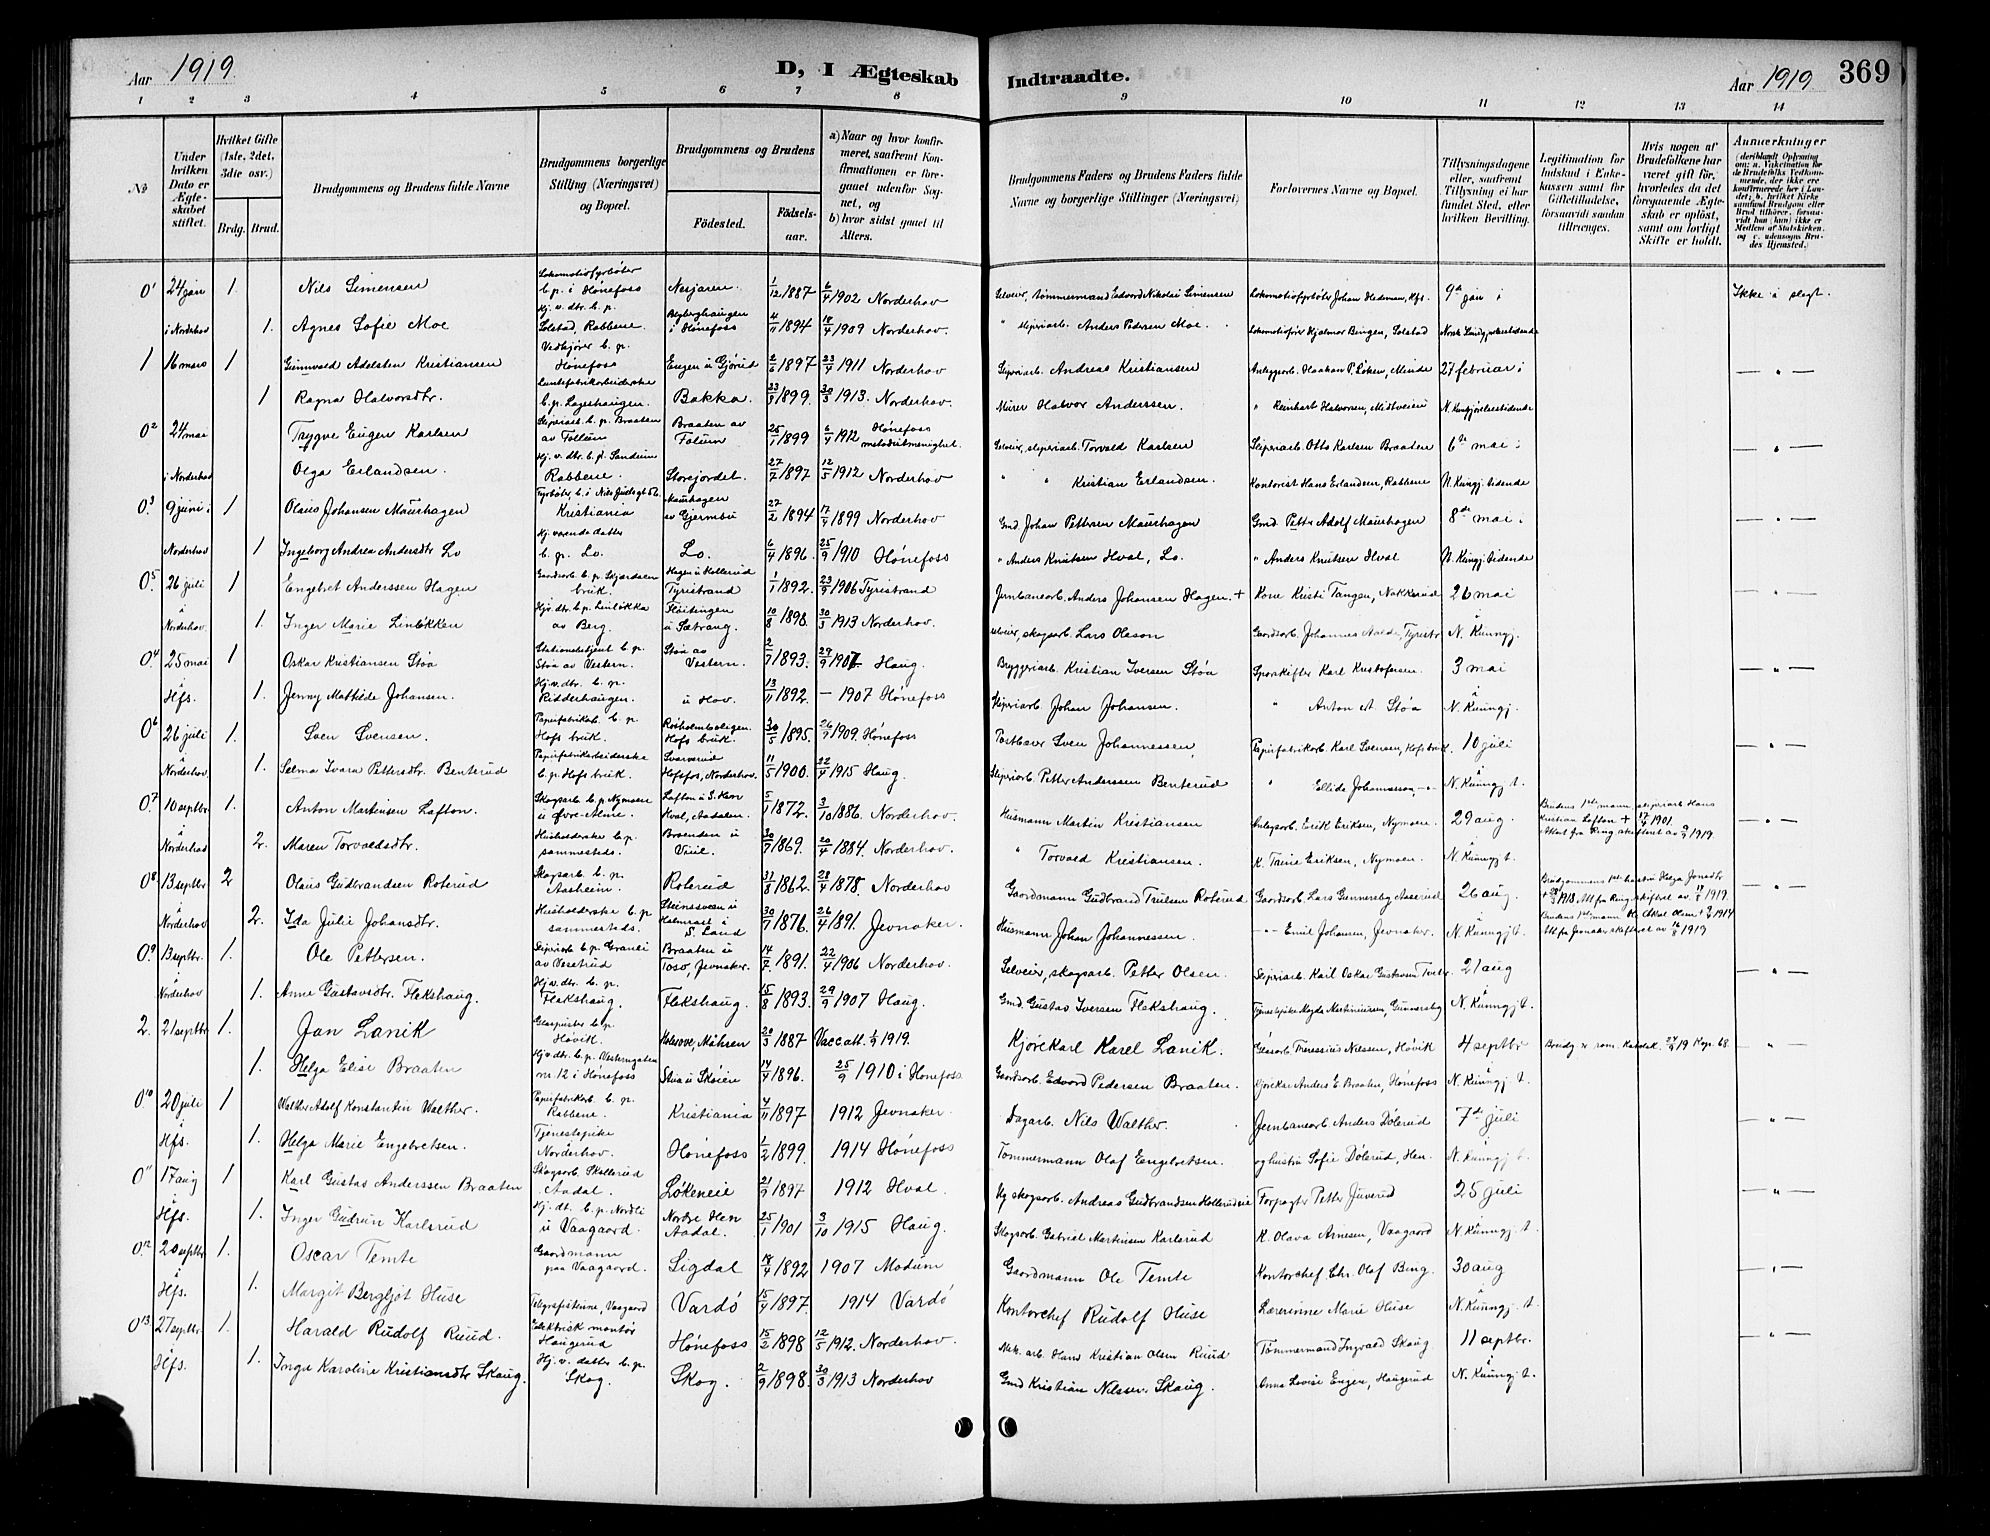 Aar 1919. D, I Ægteskab Indtraadte. Aar 1919. 369
1 2 3 4 5 6 7 8 9 10 11 12 13 14
No
Under hvilken Dato er Ægteskabet stiftet.
Hvilket Gifte (1ste, 2det, 3die osv.)
Brdg. Brud.
Brudgommens og Brudens fulde Navne
Brudgommens borgerlige Stilling (Næringsvei) og Bopæl.
Brudgommens og Brudens
Födested.
Födselsaar.
a) Naar og hvor konfirmeret, saafremt Konfirmationen er foregaaet udenfor Sognet, og
b) hvor sidst gaaet til Alters.
Brudgommens Faders og Brudens Faders fulde Navne og borgerlige Stillinger (Næringsvei)
Forlovernes Navne og Bopæl.
Tillysningsdagene eller, saafremt Tillysning ei har fundet Sted, efter hvilken Bevilling.
Legitimation for Indskud i Enkekassen samt for Giftetilladelse, forsaavidt saadan tiltrænges.
Hvis nogen af Brudefolkene har været gift för, hvorledes da det foregaaende Ægteskab er oplöst, samt om lovligt Skifte er holdt.
Anmærkninger
(deriblandt Oplysning om: a. Vakcination for de Brudefolks Vedkommende, der ikke ere konfirmerede her i Landet; b. hvilket Kirkesamfund Brudgom eller Brud tilhörer, forsaavidt han (hun) ikke er Medlem af Statskirken, og c. udensogns Brudes Hjemsted.
0 1 24 jan 1. Nils Simensen Lokomotivfyrbøter b. p. i Hønefoss Nesjaren. 1/12 1887 6/4 1902 Norderhov Selveier, tømmermand Edvard Nikolai Simensen Lokomotivfyrbøter Johan Hedman, Hfs. 9de jan i Ikke i slegt.
i Norderhov 1. Agnes Sofie Moe Hj. v. dtr. b. p. Solstad, Rabbene. Bergberghaugen i Hønefoss 4/11 1894 18/4 1909 Norderhov. " sliperiarb. Anders Pedersen Moe. Lokomotivfører Hjalmar Bingen, Solstad
1 16 mars 1 Gunnvald Adelsten Kristiansen Vedkjører b. p. Hønefoss Engen u Gjørud 2/6 1897 23/4 1911 Norderhov Sliperiarb. Andreas Kristiansen Anlegsarb. Haakon P. Løken, Minde 27 februar i — " —
1 Ragna Halvorsdtr. b. p. Lageshaugen. Bakka. 23/9 1899. 30/3 1913. Norderhov. Murer Halvor Anderssen. " Reinhart Halvorsen, Midtveien N. Kungjørelsestidende
0 2 24 mai Trygve Eugen Karlsen Sliperiarb. b. p. Braaten av Follum Braaten av Folum 25/1 1899 6/4 1912 Hønefoss metodistmenighet. Selveier, sliperiarb. Torvald Karlsen Sliperiarb. Otto Karlsen Braaten 6te mai i — " —
i Norderhov Olga Erlandsen. Hj. v. dtr. b. p. Sandum Rabbene Storejordet. 27/7 1897 12/5 1912 Norderhov " " Kristian Erlandsen. Kontorist Hans Erlandsen, Rabbene N. Kungj. tidende
0 3 9 juni i 1 Olaus Johansen Maurhagen Kristiania Maurhagen av Gjermbu 27/2 1894 17/9 1899 Norderhov Gmd. Johan Pettersen Maurhagen Gmd. Petter Adolf Maurhagen 8de mai i — " —
Norderhov 1 Ingeborg Andrea Andersdtr Lo Hj. værende datter b. p. Lo. Lo. 6/4 1896. 25/9 1910 Hønefoss " Anders Knutsen Hval, Lo. " Anders Knutsen Hval N. Kungj. tidende
0 5 26 juli 1 Engebret Anderssen Hagen Gaardsarb. b. p. Skjærdalen bruk. Hagen u Hollerud Tyristrand 1/1 1892. 23/9 1906 Tyristrand Jernbanearb. Anders Johansen Hagen. + Kone Kristi Tangen, Nakkerud 26 mai — " —
i Norderhov. 1. Inger Marie Linløkken Hjv. dtr. b. p. Linløkka av Berg. Fløitingen u Sætrang. 10/8 1898. 30/3 1913 Norderhov. Selveier, skogsarb. Lars Oleson Gaardsarb. Johannes Aalde, Tyristr. N. Kunngj.
0 4 25 mai 1 Oskar Kristiansen Støa Stationsbetjent b. p. Støa av Vestern. Støa av Vestern. 2/7 1893. 29/9 1907 Haug. Bryggeriarb. Kristian Iversen Støa Sporskifter Karl Kristofersen 3 mai — " —
i Hfs. 1. Jenny Mathilde Johansen. Hj. v. dtr. b. p. Ridderhaugen. u Hov. 13/11 1892. — 1907 Hønefoss Sliperiarb. Johan Johansen. " Anton A. Støa N. Kunngj.
0 6 26 juli 1. Sven Svensen. Papirfabrikarb. b. p. Hofs bruk. Rosholmboligen Hofs bruk. 30/5 1895. 26/9 1909. Hønefoss Postbærer Sven Johannessen Papirfabrikarb. Karl Svensen, Hofsbruk. 10 juli — " —
i Norderhov. 1. Selma Ivara Pettersdtr. Benterud Papirfabrikarbeiderske b. p. Hofs bruk. Svarverud Hofsfos, Norderhov. 11/5 1900. 22/4 1915 Haug. Sliperiarb. Petter Anderssen Benterud " Ellide Johannessen — " — N. Kunngj t.
0 7 10 septbr 1. Anton Martinsen Lafton. Skogsarb. b. p. Nymoen u Øvre-Alme. Lafton u S. Hern Hval, Aadalen. 5/1 1872. 3/10 1886. Norderhov. Husmann Martin Kristiansen Anlegsarb. Erik Eriksen, Nymoen. 29 aug. Brudens 1ste mann, sliperiarb Hans Kristian Lofton + 17/4 1901. Attest fra Ring. skifteret av 9/9 1919. — " —
i Norderhov 2. Maren Torvaldsdtr. Husholderske b. p. sammesteds. Brænden u Viul. 30/7 1869. 20/4 1884. Norderhov. " Torvald Kristiansen. K. Taine Eriksen, Nymoen. N. Kunngj t.
0 8 13 septbr 2 Olaus Gudbrandsen Roterud Skogsarb. b. p. Aasheim. Roterud 31/8 1862. 28/4 1878. Norderhov Gaardmann Gudbrand Trulsen Roterud Gaardsarb. Lars Gunnersby Aaserud 26 aug. Brudgommens 1ste hustru Helga Jonsdtr + 1913. Att fra Ring. skifteret av 1919. Brudens 1ste mann Ole Aksel Olsen + 1914 Att fra Jevnaker skifteret av 1919 — " —
i Norderhov 2. Ida Julie Johansdtr. Husholderske b. p. sammesteds. S. Land 30/7 1876. 26/4 1891. Jevnaker. Husmann Johan Johannessen — " — Emil Johansen, Jevnaker. N. Kunngj t.
0 9 13 septbr. 1. Ole Pettersen. Sliperiarb. b. p. Granli av Veserud Braaten u Toso, Jevnaker. 14/7 1891. 22/4 1906 Norderhov. Selveier, skogsarb. Petter Olsen. Sliperiarb. Karl Oskar Gustavsen 21 aug — " —
i Norderhov 1. Anne Gustavsdtr. Flekshaug. Hj. v. dtr. b. p. Flekshaug. Flekshaug. 15/8 1893. 29/9 1907 Haug. Gmd Gustav Iversen Flekshaug. Tjenestepike Magda Martiniussen, Gunnersby N. Kunngj t.
2. 21 septbr 1. Jan Lanik Glaspuster b. p. Høvik Holesove, Mähren 20/3 1887 Vacc att. 1/9 1919. Kjørekarl Karel Lanik. Glasarb. Theressius Nilssen, Høvik 4 septbr Brudg. er rom. katolik. 27/9 19 Kop. 68. — " —
1. Helga Elise Braaten Hjv. dtr. b. p. Vesterngaten nr. 12 i Hønefoss Stua u Skøien 14/4 1896. 25/9 1910 i Hønefoss Gaardsarb. Edvard Pedersen Braaten. Kjørekar Anders E. Braaten, Hønefoss N. Kunngj. t.
0 10 20 juli 1 Walther Adolf Konstantin Walther. Papirfabrikarb. b. p. Rabbene. Kristiania 4/11 1897 1912 Jevnaker. Dagarb. Nils Walther. Jernbanearb Anders Dølerud 7de juli — " —
i Hfs. 1. Helga Marie Engebretsen. Tjenestepike Norderhov. Hønefoss 1/2 1899. 1914 Hønefoss Tømmermann Olaf Engebretsen. og hustru Sofie Dølerud, Hen. N. Kunngj t.
0 11 17 aug 1 Karl Gustav Anderssen Braaten Skogsarb. Skollerud Aadal. Løkeneie 21/9 1897 1912 Hval. Skogsarb. Andreas Gudbrandsen Hollerudeie Forpagter Petter Juverud 25 juli — " —
i Hfs. 1. Inger Gudrun Karlsrud Hj. dt. b. p. Nordli u Vaagaard. Nordre Hen Aadal. 25/1 1901 3/10 1915 Haug. Skogsarb. Gabriel Martinsen Karlsrud K. Olava Arnesen, Vaagaard N. Kunngj. t.
0 12 20 septbr 1. Oscar Temte Gaardmann paa Vaagaard. Sigdal 18/4 1892 1907 Modum Gaardmann Ole Temte Kontorchef Chr. Olaf Bing. 30 aug — " —
i Hfs. 1. Margit Bergljot Huse Telegrafistinne, Vaagaard Vardø 15/4 1897. 1914 Vardø Kontorchef Rudolf Huse Lærerinne Marie Huse N. Kunngj. t.
0 13 27 septbr. 1. Harald Rudolf Ruud. Elektrisk montør Haugerud Hønefoss 15/2 1898 12/5 1912. Norderhov. Mek. arb. Hans Kristian Olsen Ruud Tømmermand Ingvald Skaug 11 septbr. — " —
i Hfs. 1. Inga Karoline Kristiansdtr Skaug. Hj. v. datter b. p. Skog. Skog. 2/9 1898. 30/3 1913 Norderhov Gmd Kristian Nilssen Skaug. Anna Lovise Engen, Haugerud N. Kunngj t.